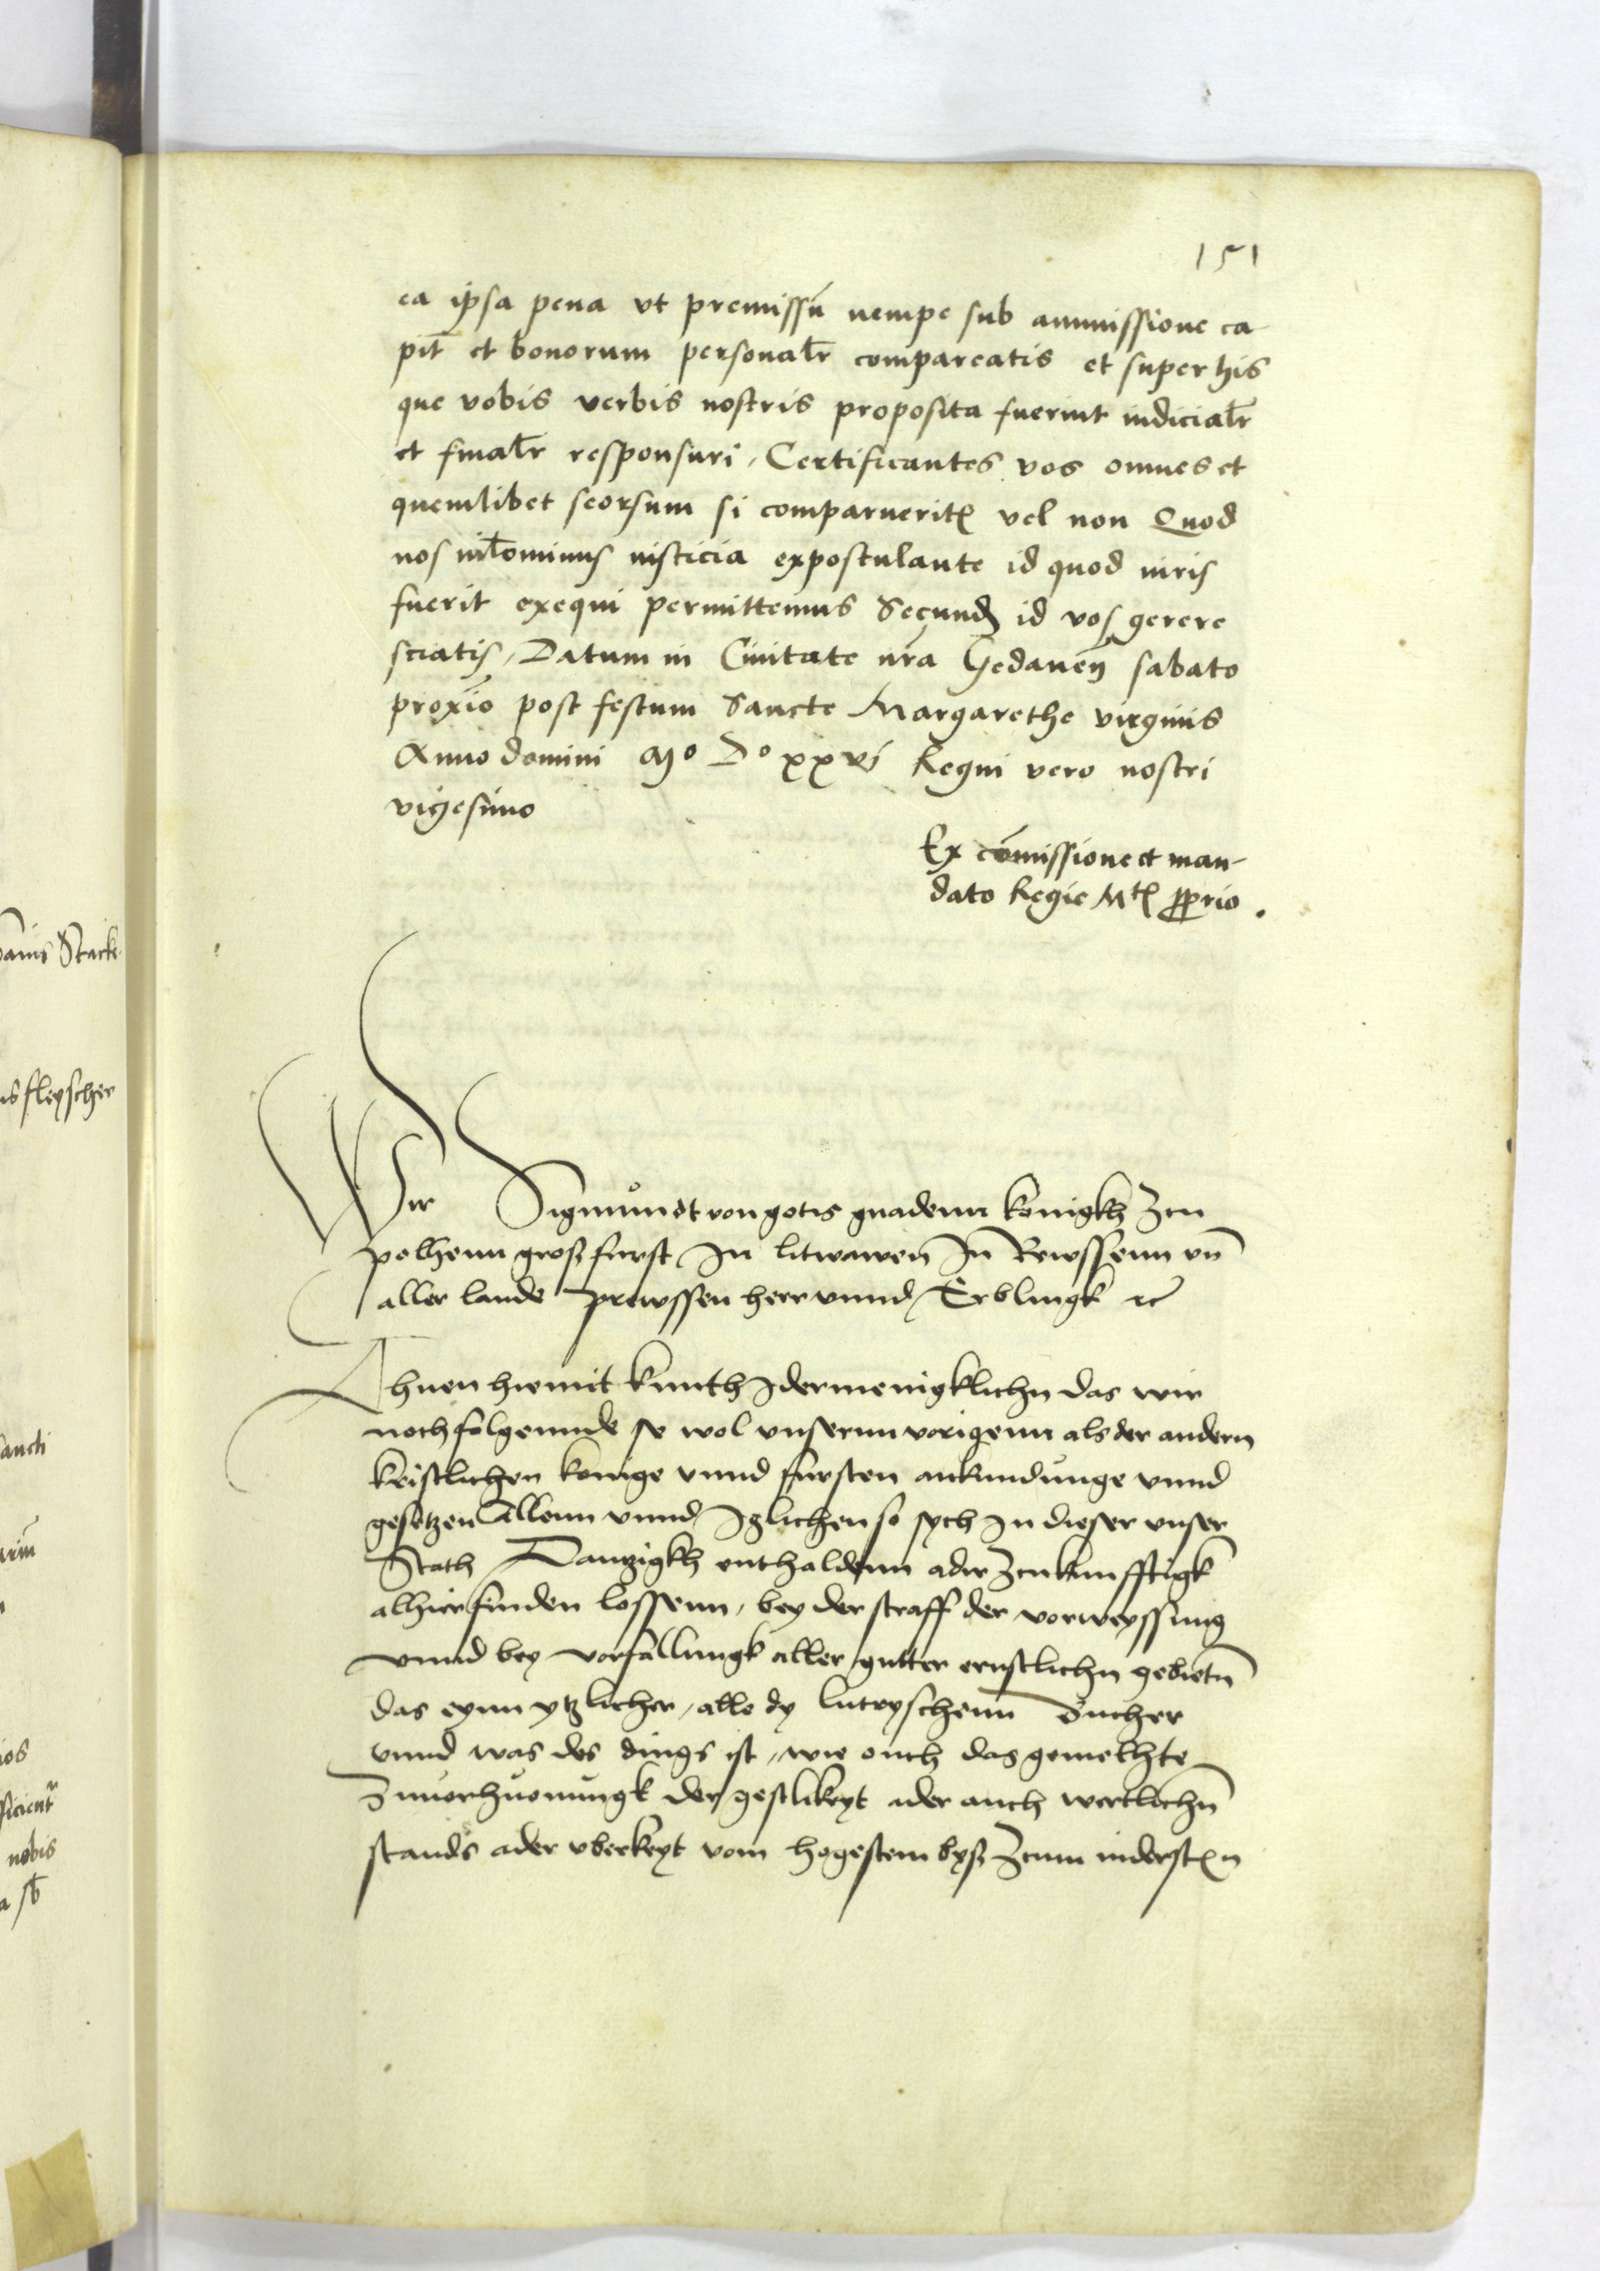 151
ea ipsa pena vt premissũ nempe sub ammissione ca
pit̃ et bonorum personalr̃ compareatis et super his
que vobis verbis nostris proposita fuerint iudicialr̃
et finalr̃ responsuri, Certificantes vos omnes et
quemlibet seorsum si comparueritꝭ vel non Quod
nos nil̃ominus iusticia expostulante id quod iuris
fuerit exequi permittemus Secundꝫ id vos gerere
sciatis, Datum in Ciuitate nr̃a Gedaneñ sabato
proxĩo post festum Sancte Margarethe virginis
Anno domini Mº Dº xxvi Regni vero nostri
vigesimo
Ex cõmissione et man-
dato Regie Mtꝭ ꝓprio.
Wir Sigmůndt von gotis gnadenn konigkh Zcu
polhenn grosfurst, In litwawen̄ In Rewssenn vñ
aller lande prewssen herr vnnd Erblingk ꝛc
Thuen hiemit kunth Idermenigklichn das wir
nochfolgennde so wol vnsernn vorigenn als der andern
kristlichen konige vnnd fursten ankundůnge vnnd
gesetzen Allenn vnnd Iglichen so sych In dieser vnser
Stath Dantzigkh enthaldenn ader Zcukunfftigk
alhier finden lossenn, bey der straff der vorweyssung
vnnd bey vorfallungk aller gutter ernstlichn gebietñ
das eynn ytzlicher, alle dy lutryschenn Bucher
vnnd was des dings ist, wie ouch das gemelhte
Zuuorhůonůngk der geistlikeyt ader auch wertlichñ
stands ader vberkeyt vom hogestem byß Zcum niderstꝭn
ꝰanis Stacke
is fleyscher
sancti
ios
ficient
nobis